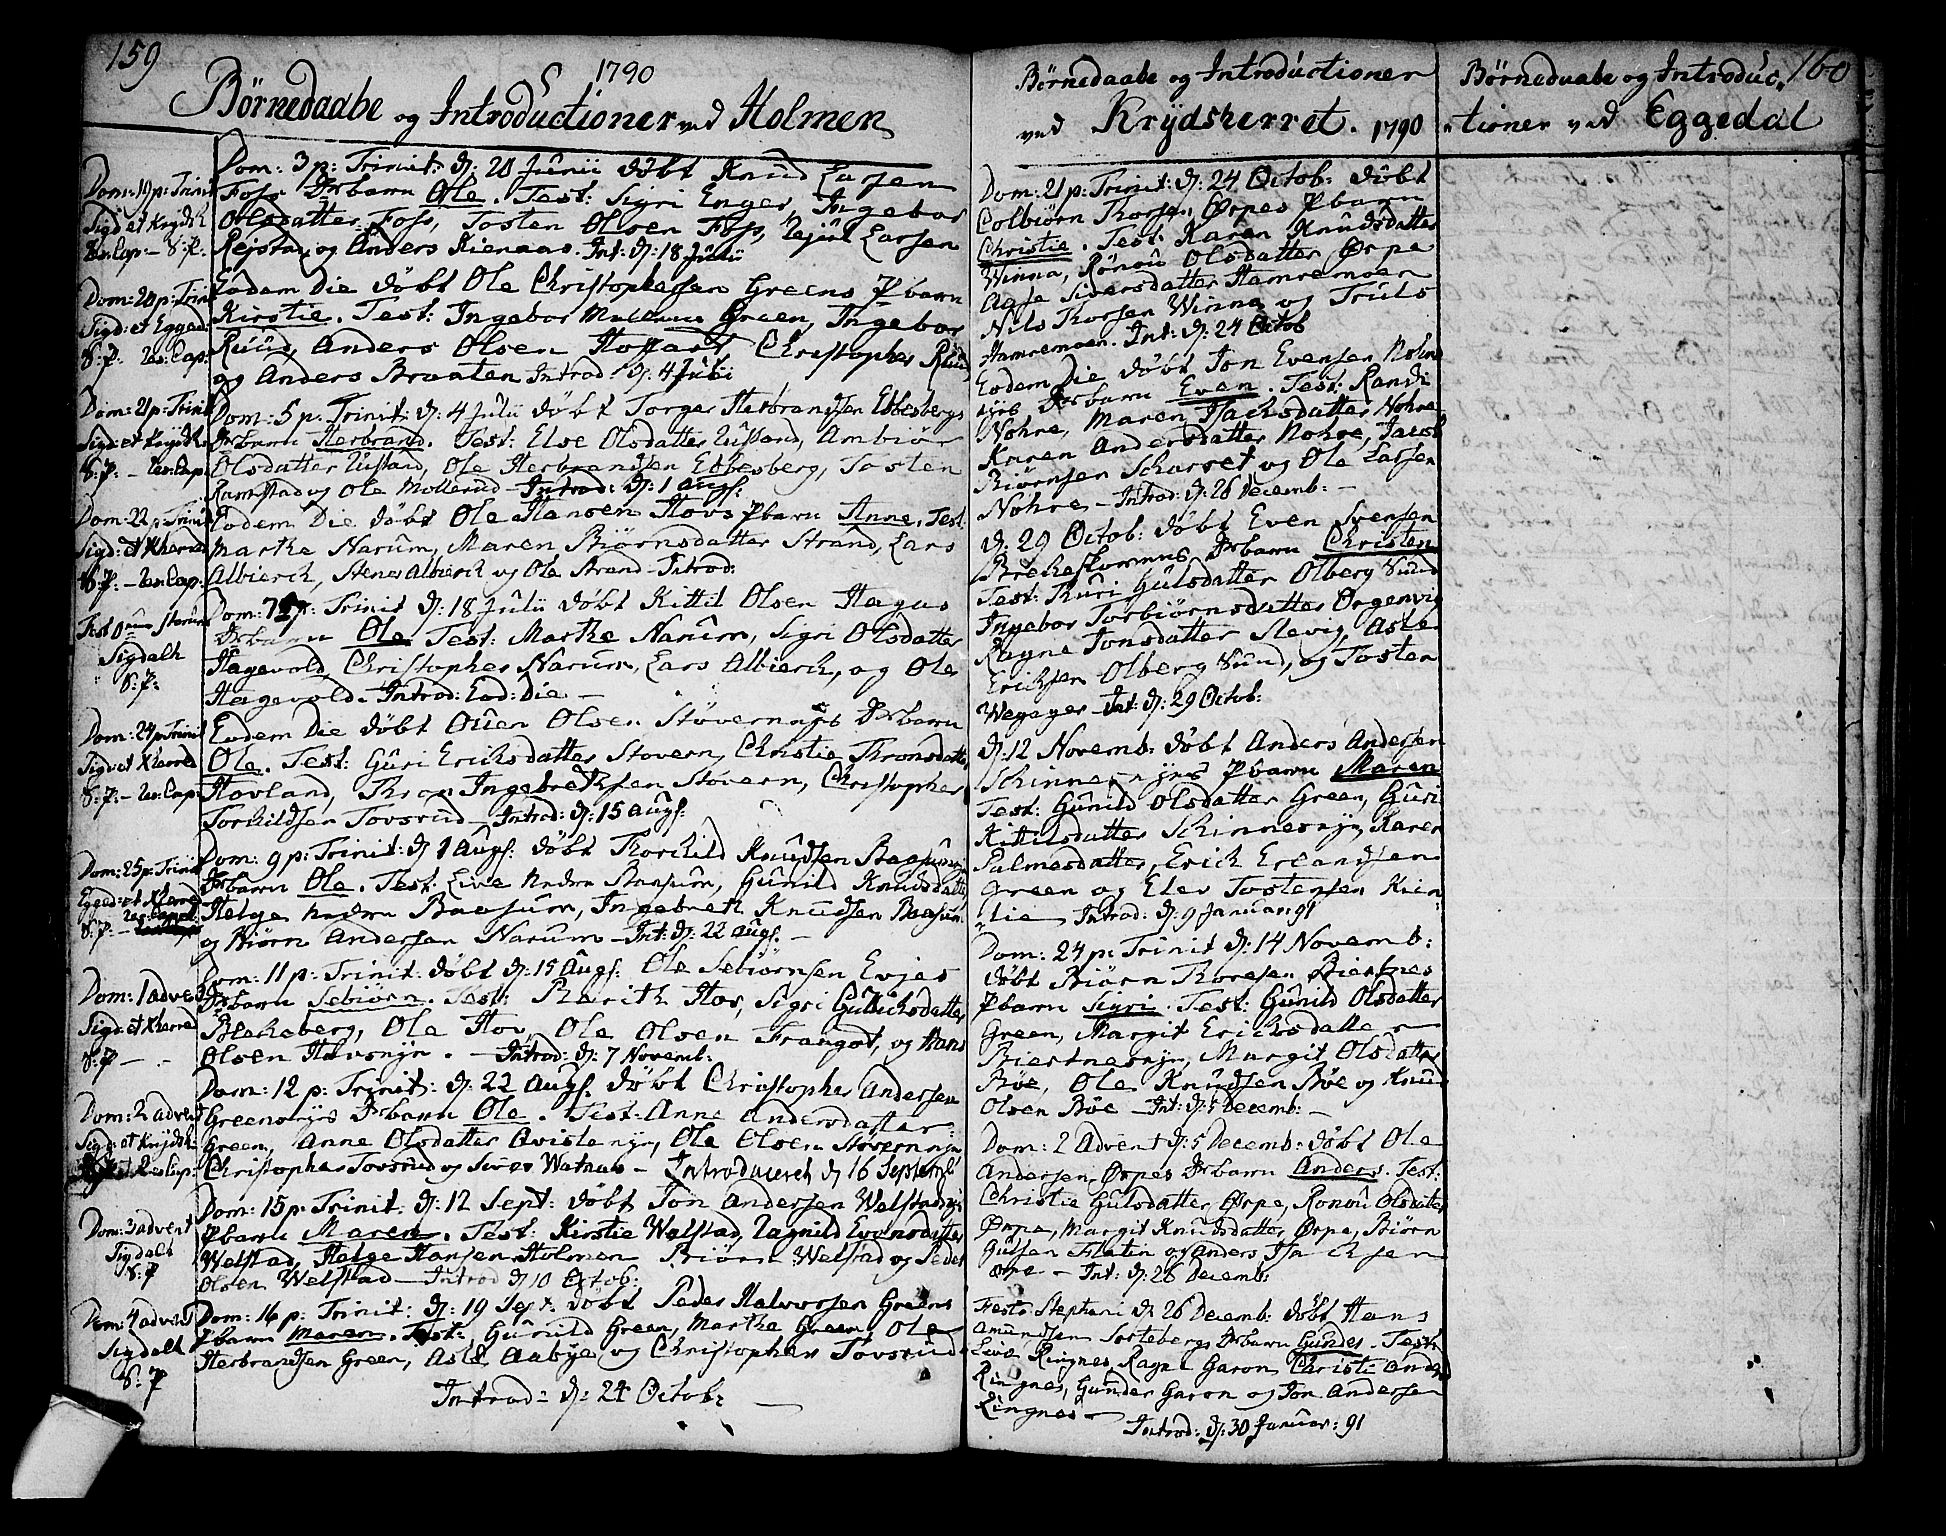 159
1790
Börnedaabe og Introductioner ved Holmen
Dom: 19 p: Trinit
Sigd: et Krydsh
Res: Cap – S: P:
Dom: 20 p: Trinit
Sigd: et Egged:
S: P: Res: Cap:
Dom: 21 p: Trinit
Sigd: et Krydsh
S: P: – Res: Cap:
Dom: 22 p: Trinit
Sigd: et Xherred
S: P: – Res: Cap:
Fest Omn: Sanct:
Sigdalh
S: P:
Dom: 24 p: Trinit
Sigd: et Xherred
S: P: – Res: Cap:
Dom: 25 p: Trinit
Egged: et Xherred
S: P: – Res: Capel:
Dom: 1 advent
Sigd: et Xherred
S: P –
Dom: 2 advent
Sigd: et Krydsh:
Res: Cap:
Dom: 3 advent
Sigdalh
S: P
Dom: 4 advent
Sigdalh
S: P
Dom: 3 p: Trinit: d: 20 Junii döbt Knud Larsen
Foss Drbarn Ole. Test: Sigri Enger, Ingebor
Olsdatter Foss, Tosten Olsen Foss, Larsen
og Anders Kienaas. Int: d: 18 Julii
Eodem Die döbt Ole Christophersen Greens Pbarn
Kirstie. Test: Ingebor Green, Ingebor
Ruud, Anders Olsen Christopher Ruud
og Anders Braaten Introd: d: 4 Julii
Dom: 5 p: Trinit: d: 4 Julii döbt Torger Herbrandsen Ebbesbergs
Drbarn Herbrand. Test: Else Olsdatter Ambiör
Olsdatter Ole Herbrandsen Ebbesberg, Tosten
Ramstad og Ole Mollerud – Introd: d: 1 Augs:
Eodem Die döbt Ole Hansen Hovs Pbarn Anne. Test:
Marthe Narum, Maren Biörnsdatter Strand, Lars
Albierck, Stener Albierck og Ole Strand – Introd:
Dom: 7 p: Trinit d: 18 Julii döbt Kittil Olsen
Drbarn Ole Test: Marthe Narum, Sigri Olsdatter
Hagevold, Christopher Narum, Lars Albierck, og Ole
Hagevold – Introd: Eod: Die –
Eodem Die döbt Ouen Olsen Drbarn
Ole. Test: Guri Ericksdatter Stovern, Christie Thronsdatter
Hovland, Thron Ingebrethsen Stovern, Christopher
Torkildsen Tovsrud – Introd: d: 15 Augs:
Dom: 9 p: Trinit: d 1 Augs: döbt Thorkild Knudsen
Drbarn Ole. Test: Live nedre Baasum, Gunild Knudsdatter
Helge nedre Baasum, Ingebreth Knudsen Baasum
og Biörn Andersen Narum – Int: d: 22 Augs. –
Dom: 11 p: Trinit: döbt d: 15 Augs: Ole Sebiörnsen Evjes
Drbarn Sebiörn. Test: Marith Hov, Sigri Gullicksdatter
Blekeberg, Ole Hov, Ole Olsen Frangot, og Hans
Olsen Hovsnyn. – Introd: d: 7 Novemb:
Dom: 12 p: Trinit: d: 22 Augs: döbt Christopher Andersen
Greensnyes Drbarn Ole. Test: Anne Andersdatter
Green, Anne Olsdatter Ole Olsen Stovernnyn
Christopher Tovsrud og Siver Watnaas – Introduceret d 16 Septemb
Dom: 15 p: Trinit: d: 12 Sept: döbt Jon Andersen
Pbarn Maren. Test: Kirstie Welstad, Ragnild Evensdatter
Welstad, Helge Hansen Holmen Biörn Welstad og Peder
Olsen Welstad – Introd d 10 Octob:
Dom: 16 p: Trinit: d: 19 Sept: döbt Peder Halvorsen Greens
Pbarn Maren. Test: Gunild Green, Marthe Green, Ole
Herbrandsen Green, Asle Aabye og Christopher Tovsrud
Introd: d: 24 Octob: –
Börnedaabe og Introductioner
ved Krydsherret. 1790
Dom: 21 p: Trinit: d: 24 Octob: döbt
Colbiörn Thorsen Ørpes Pbarn
Christie. Test: Karen Knudsdatter
Winna, Rönou Olsdatter Ørpe
Aase Siversdatter Hamremoen
Nils Thorsen Winna og Truls
Hamremoen. Int: d: 24 Octob
Eodem Die döbt Jon Evensen Nohre
Drbarn Even. Test: Randi
Nohre, Maren Isacksdatter Nohre
Karen Andersdatter Nohre, Jacob
Biörnsen Scharret og Ole Larsen
Nohre – Introd: d: 26 Decemb: –
d: 29 Octob: döbt Even Svensen
Drbarn Christen
Test: Guri Gulsdatter Olberg Sund
Ingebor Torbiörnsdatter Ørgenvig
Ragne Jonsdatter Slevig, Asle
Ericksen Olberg Sund, og Tosten
Wegager – Int: d: 29 Octob:
d: 12 Novemb: döbt Anders Andersen
Schinnesnyns Pbarn Maren
Test: Gunild Olsdatter Green, Guri
Kittilsdatter Schinnesnyn, Karen
Palmesdatter, Erick Erlandsen
Green og Elev Tostensen Kien
lie Introd: d: 9 Januar: 91
Dom: 24 p: Trinit d: 14 Novemb:
döbt Biörn Thoresen Biertnes
Pbarn Sigri. Test: Gunild Olsdatter
Green, Margit Ericksdatter
Biertnesnyn, Margit Olsdatter
Böe, Ole Knudsen Böe og Knud
Olsen Böe – Int: d: 5 Decemb: –
Dom: 2 Advent d: 5 Decemb: döbt Ole
Andersen Ørpes Drbarn Anders. Test:
Christie Gulsdatter Ørpe, Ronou Olsdatter
Ørpe, Margit Knudsdatter Ørpe, Biörn
Gulsen Flatin og Anders Isacksen
– Int: d: 26 Decemb:
Festo Stephani d: 26 Decemb: döbt Hans
Amundsen Sortebergs Drbarn Gunder. Test:
Live Ringnes, Ragnil Garon, Christi
Ringnes, Gunder Garon og Jon Andersen
Ringnes –
Introd: d: 30 Januar: 91
160
Börnedaabe og Introduc,
tioner ved Eggedal